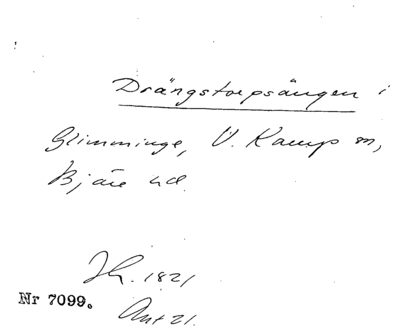 Drängstorpsängen i
Glimminge, V. Karup sn,
Bjäre hd.
Jh. 1821
Nr 7099.
Ant 21.